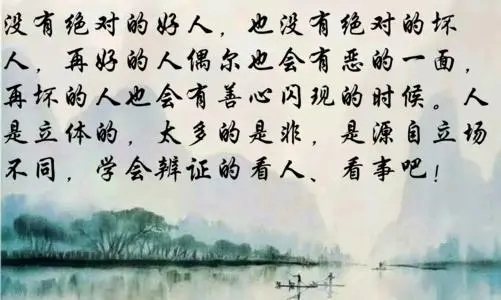 没有绝对的好人，也没有绝对的坏
人，再好的人偶尔也会有恶的一面，
再坏的人也会有善心闪现的时候。人
是立体的，太多的是非，是源自立场
不同，学会辨证的看人、看事吧！